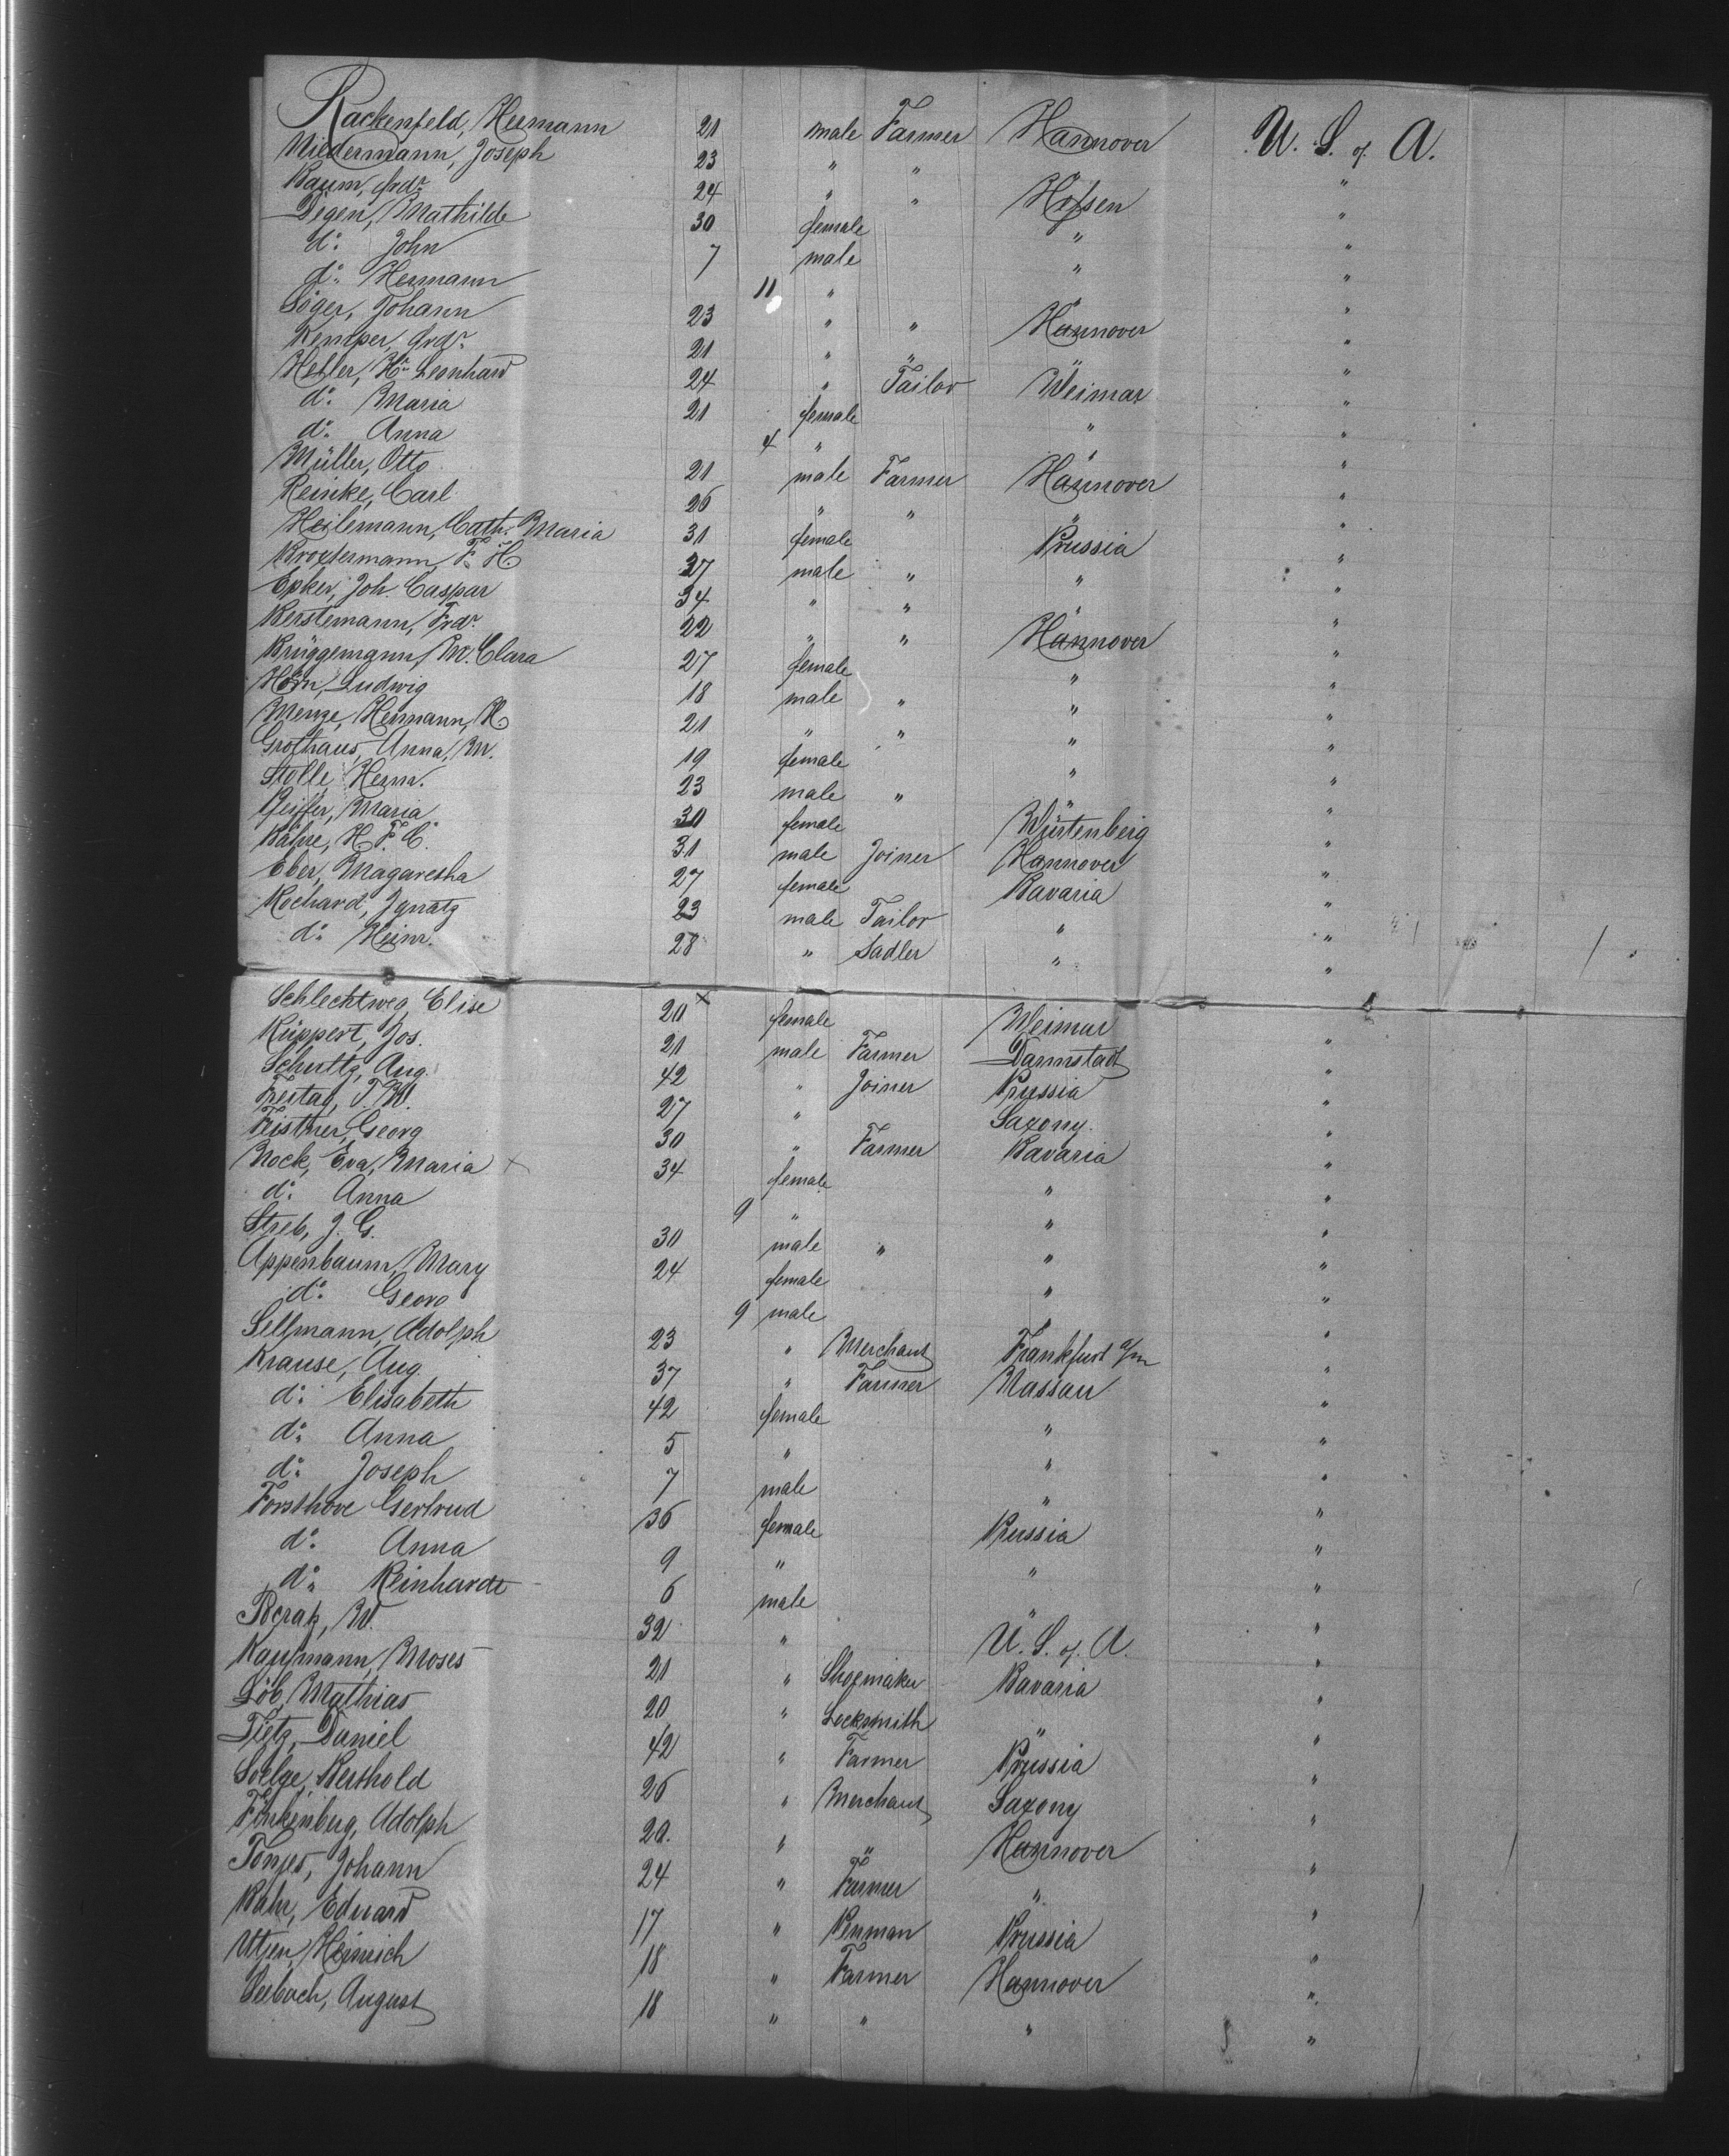 Rackenfeld, Hermann 21 male Farmer Hannover U. S. of A.
Niedermann, Joseph 23 " " " "
Baum, Frdr. 24 " " Hessen "
Degen, Mathilde 30 female " "
do. John 7 male " "
do. Hermann 11 " " "
Söger, Johann 23 " " Hannover "
Kemper, Frdr. 21 " " " "
Heller, Hr. Leonhard 24 " Tailor Weimar "
do. Maria 21 female " "
do. Anna 4 " " "
Müller, Otto 21 male Farmer Hannover "
Reinke, Carl 26 " " " "
Heilemann, Cath. Maria 31 female Prussia "
Broxtermann, F. H. 37 male " " "
Epker, Joh. Caspar 34 " " " "
Kerstemann, Frdr. 22 " " Hannover "
Brüggemann, M. Clara 27 female " "
Horn, Ludwig 18 male " " "
Menze, Hermann, H. 21 " " " "
Grothaus, Anna, M. 19 female " "
Stolle, Herm. 23 male " " "
Pfeiffer, Maria 30 female Würtenberg "
Bähre, H. F. C. 31 male Joiner Hannover "
Eber, Magaretha 27 female Bavaria "
Kochard, Ignatz 23 male Tailor " "
do. Heinr. 28 " Sadler " "
Schlechtweg, Elise 20 x female Weimar "
Rüppert, Jos. 21 male Farmer Darmstadt "
Schultz, Aug. 42 " Joiner Prussia "
Freitag, F. W. 27 " Saxony "
Feistner, Georg 30 " Farmer Bavaria "
Nock, Eva, Maria x 34 female " "
do. Anna 9 " " "
Streb, J. G. 30 male " " "
Appenbaum, Mary 24 female " "
do. Georg 9 male " "
Sellmann, Adolph 23 " Merchant Frankfurt a/m "
Krause, Aug. 37 " Farmer Nassau "
do. Elisabeth 42 female " "
do. Anna 5 " " "
do. Joseph 7 male " "
Forsthove Gertrud 36 female Prussia "
do. Anna 9 " " "
do. Reinhardt 6 male " "
W. 32 " U. S. of A. "
Kaufmann, Moses 21 " Shoemaker Bavaria "
Löb, Mathias 20 " Locksmith " "
Tietz, Daniel 42 " Farmer Prussia "
Soelge, Berthold 26 " Merchant Saxony "
Finkenberg, Adolph 20. " " Hannover "
Tönjes, Johann 24 " Farmer " "
Bahr, Eduard 17 " Penman Prussia "
Utjen, Heinrich 18 " Farmer Hannover "
Seebach, August 18 " " " "